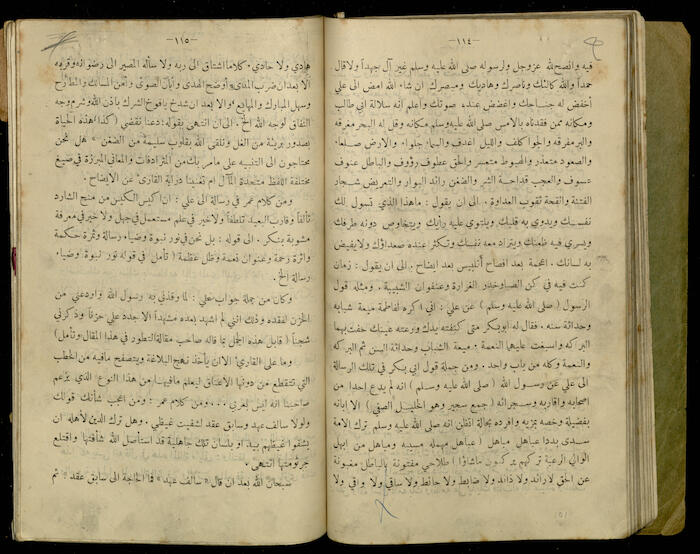 —١١٤—
فيه وانصح لله عز وجل ولرسوله صلى الله عليه وسلم غير آل جهداً ولا قال
حمداً والله كالئك وناصرك وهاديك ومبصرك ان شاء الله امض الى علي
أخفض له جناحك واغضض عنده صوتك واعلم انه سلالة ابي طالب
ومكانه ممن فقدناه بالامس صلى الله عليه وسلم مكانه وقل له البحر مغرقة
والبر مفرقة والجو اكلف والليل اغدف والسماء جلواء والارض صلعاء
والصعود متعذر والهبوط متعسر والحق عطوف رؤوف والباطل عنوف
عسوف والعجب قداحة الشر والضغن رائد البوار والتعريض شجار
الفتنة والقحة ثقوب العداوة. الى ان يقول: ماهذا الذي تسول لك
نفسك ويدوى به قلبك ويلتوي عليه رأيك ويتخاوص دونه طرفك
ويسري فيه ظعنك ويتراد معه نفسك وتكثر عنده صعداؤك ولا يفيض
به لسانك. اعجمة بعد افصاح أتلبيس بعد ايضاح. الى ان يقول: زمان
كنت فيه في كن الصبا وخدر الغرارة وعنفوان الشبيبة. ومثله قول
الرسول (صلى الله عليه وسلم) عن علي: اني اكره لفاطمة ميعة شبابه
وحداثة سنه. فقال له ابو بكر متى كنفته يدك ورعته عينك حفت بهما
البركه واسبغت عليهما النعمة. ميعة الشباب وحداثة السن ثم البركه
والنعمة وكله من باب واحد. ومن جملة قول ابي بكر في تلك الرسالة
الى علي عن رسول الله (صلى الله عليه وسلم) انه لم يدع احدا من
اصحابه واقاربه وسجرائه (جمع سجير وهو الخليل الصفي) الا ابانه
بفضيلة وخصه بمزية وافرده بحالة اتظن انه صلى الله عليه وسلم ترك الامة
سدى بددا عباهل مباهل (عباهل مهمله مسيبه ومباهل من ابهل
الوالي الرعية تركهم يركبون ماشاؤا) طلاحي مفتونة بالباطل مغبونة
عن الحق لا رائد ولا ذائد ولا ضابط ولا حائط ولا ساقي ولا واقي ولا
—١١٥—
هادي ولا حادي. كلا ما اشتاق الى ربه ولا سأله المصير الى رضوانه وقربه
الا بعد ان ضرب المدى وأوضح الهدى وأبان الصوى وأمن المسالك والمطارح
وسهل المبارك والمهايع والا بعد ان شدخ يافوخ الشرك باذن الله وشرم وجه
النفاق لوجه الله الخ. الى ان انتهى بقوله: دعنا نقضي (كذا) هذه الحياة
بصدور بريئة من الغل ونلقى الله بقلوب سليمة من الضغن» هل نحن
محتاجون الى التنبيه على مامر بك من المترادفات والمعاني المبرزة في صيغ
مختلفة اللفظ متحدة المآل ام تغنينا دراية القارئ عن الايضاح.
ومن كلام عمر في رسالة الى علي: ان اكيس الكيس من منح الشارد
تألفاً وقارب البعيد تلطفاً ولا خير في علم مستعمل في جهل ولا خير في معرفة
مشوبة بنكر. الى قوله: بل نحن في نور نبوة وضياء رسالة وثمرة حكمة
واثرة رحمة وعنوان نعمة وظل عظمة (تأمل في قوله نور نبوة وضياء
رسالة الخ).
وكان من جملة جواب علي: لما وقذني به رسول الله واودعني من
الحزن لفقده وذلك انني لم اشهد بعده مشهداً الا جدد علي حزناً وذكرني
شجناً (قابل هذه الجمل بما قاله صاحب مقالة التطور في هذا المقال وتأمل)
وما على القارئ الا ان يأخذ نهج البلاغة ويتصفح مافيه من الخطب
التي تتقطع من دونها الاعناق ليعلم مافيها من هذا النوع الذي يزعم
صاحبنا انه ليس بعربي... ومن كلام عمر: ومن اعجب شأنك قولك
ولولا سالف عهد وسابق عقد لشفيت غيظي. وهل ترك الدين لاهله ان
يشفوا غيظهم بيد او بلسان تلك جاهلية قد استأصل الله شأفتها واقتلع
جرثومتها انتهى.
سبحان الله بعد ان قال «سالف عهد» فما الحاجة الى سابق عقد» ثم